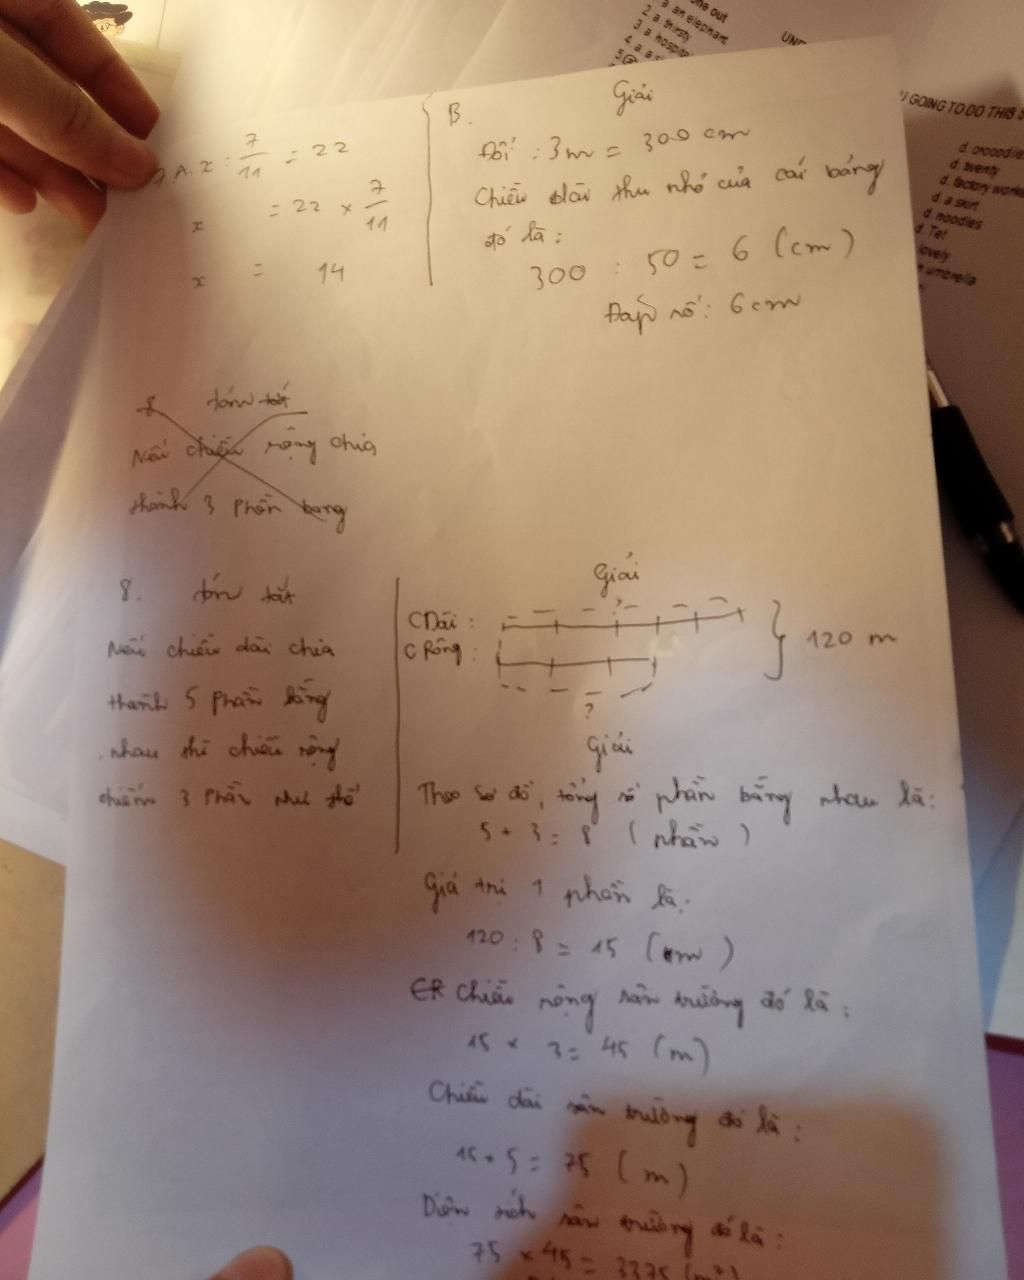 one out
2. a. an elephant
3. a. thirsty
4. a. hospital
5.
GOING TO DO THIS
d. crocodiles
d. twenty
d. factory worker
d. a skirt
d. noodles
d. Tet
lovely
umbrella
7 A. x : 7/11 = 22
x = 22 × 7/11
x = 14
B. Giải
Đổi : 3m = 300 cm
Chiều dài thu nhỏ của cái bảng
đó là :
300 : 50 = 6 (cm)
Đáp số : 6 cm
8 tóm tắt
Nếu chiều rộng chia
thành 3 phần bang
8. tóm tắt
Nếu chiều dài chia
thành 5 phần bằng
nhau thì chiều rộng
chiếm 3 phần như thế
Giải
?
C Dài :
C Rộng :
120 m
?
Giải
Theo sơ đồ, tổng số phần bằng nhau là :
5 + 3 = 8 (phần)
Giá trị 1 phần là :
120 : 8 = 15 (m)
Chiều rộng sân trường đó là :
15 × 3 = 45 (m)
Chiều dài sân trường đó là :
15 × 5 = 75 (m)
Diện tích sân trường đó là :
75 × 45 = 3375 (m²)